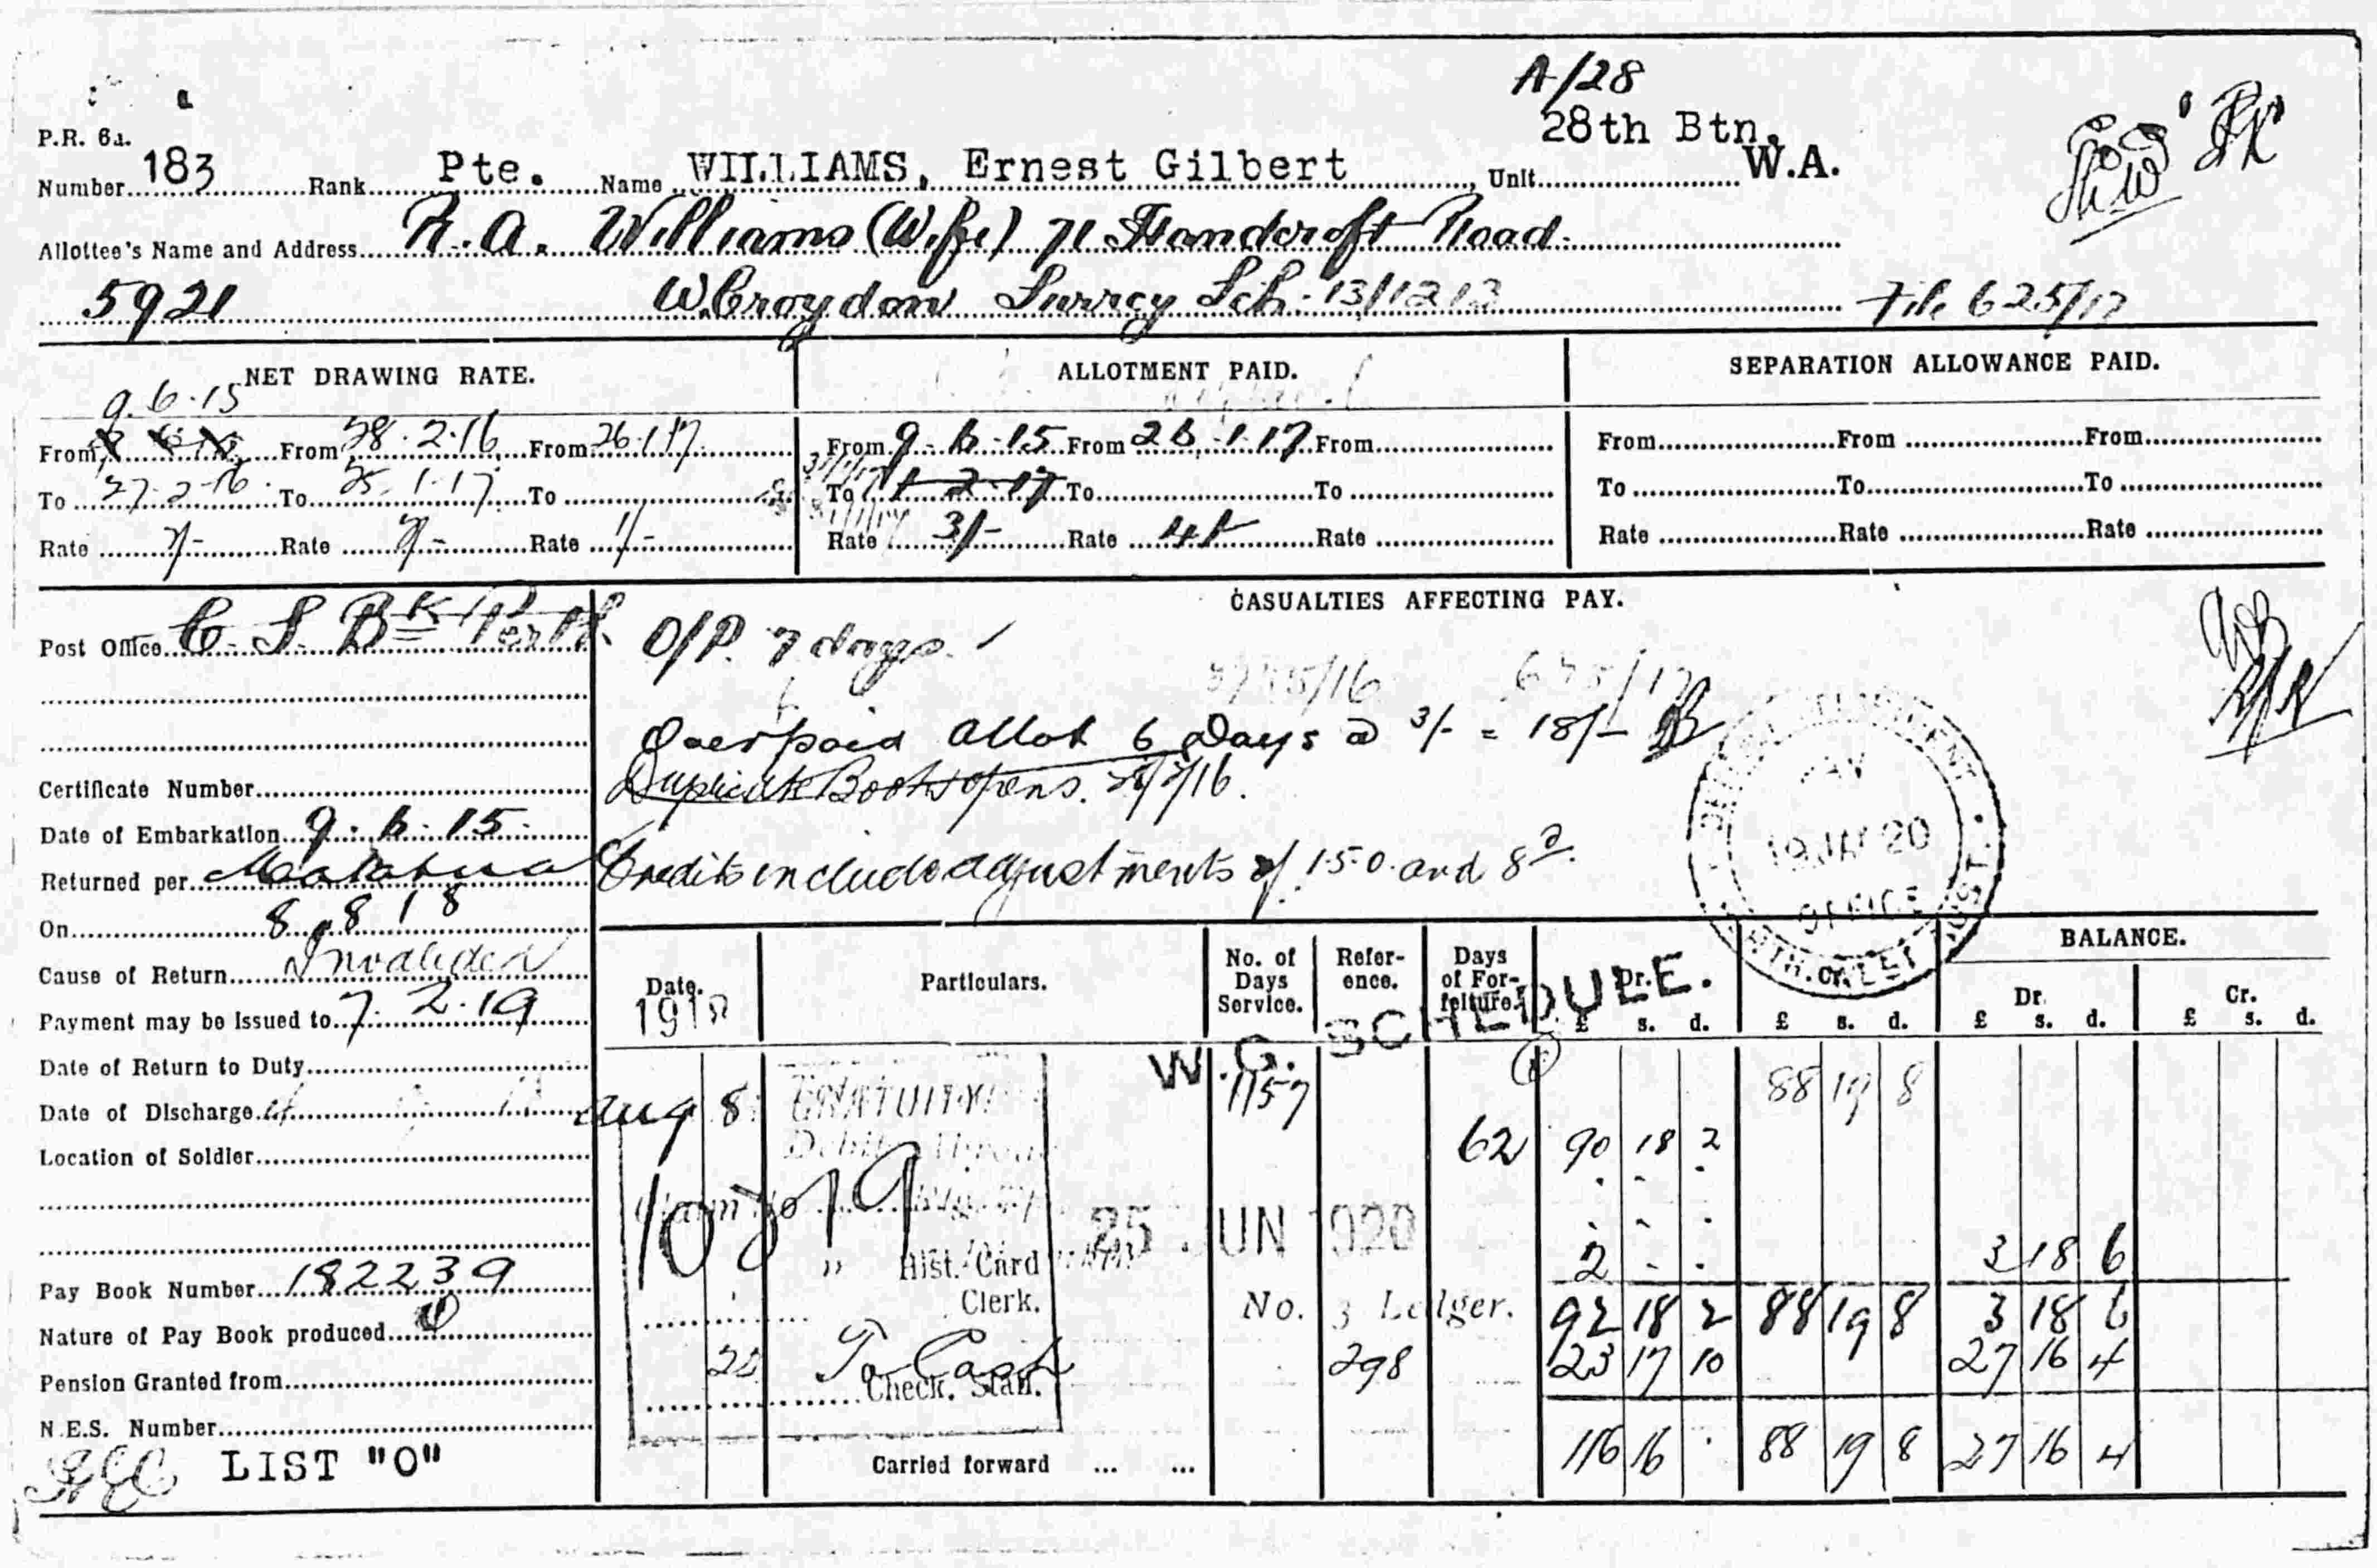 A/28
28th Btn.
P.R. 6A.
Number 183 Rank Pte. Name WILLIAMS, Ernest Gilbert Unit W.A.
Allottee's Name and Address A. Williams (Wife) 71 Handcroft Road
5921 W. Croydon Surrey Sch. 13/1213 File 625/17
NET DRAWING RATE. ALLOTMENT PAID. SEPARATION ALLOWANCE PAID.
9.6.15
From From 28.2.16 From 26.1.17. From 9.6.15 From 26.1.17 From From From From
To 27.2.16 To 25.1.17 To To 1.2.17 To To To To To
Rate Rate Rate 1/- Rate 3/- Rate 4/- Rate Rate Rate Rate
CASUALTIES AFFECTING PAY.
Post Office C. S. Bk Perth
O/P. 7 days.
Overpaid allot 6 Days @ 3/- = 18/-
Duplicate Book opens.
Certificate Number
Date of Embarkation 9.6.15
Returned per
Credits include adjustments of 1.5.0. and 8d.
PAY
OFFICE
On 8.8.18
Cause of Return Invalided
Payment may be Issued to 7.2.19
Date of Return to Duty
Date of Discharge
Location of Soldier
Pay Book Number 182239
Nature of Pay Book produced
Pension Granted from
N.E.S. Number
LIST "O"
BALANCE.
Date. Particulars. No. of Days Service. Refer-ence. Days of For-feiture. Dr. Cr. Dr. Cr.
£ s. d. £ s. d. £ s. d. £ s. d.
W.G. SCHEDULE.
Aug 8 GRATUITY 1157 88 19 8
62 90 18 2
25 JUN 1920
2 3 18 6
" Hist. Card
Clerk. No. 3 Ledger. 92 18 2 88 19 8 3 18 6
To Cash 298 23 17 10 27 16 4
Check. Stan.
Carried forward ... ... 116 16 . 88 19 8 27 16 4